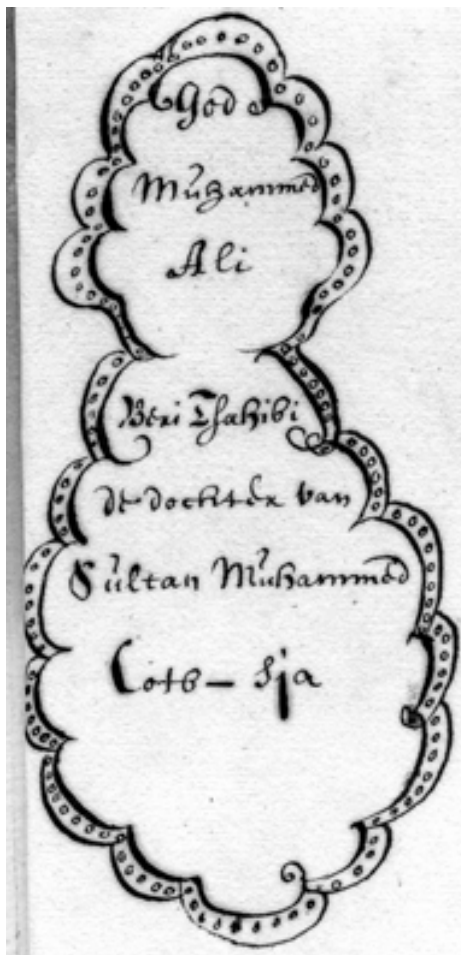 God
Muhammed
Ali
Beri Tsahibi
de dochter van
Sultan Muhammed
Cotb- Sja